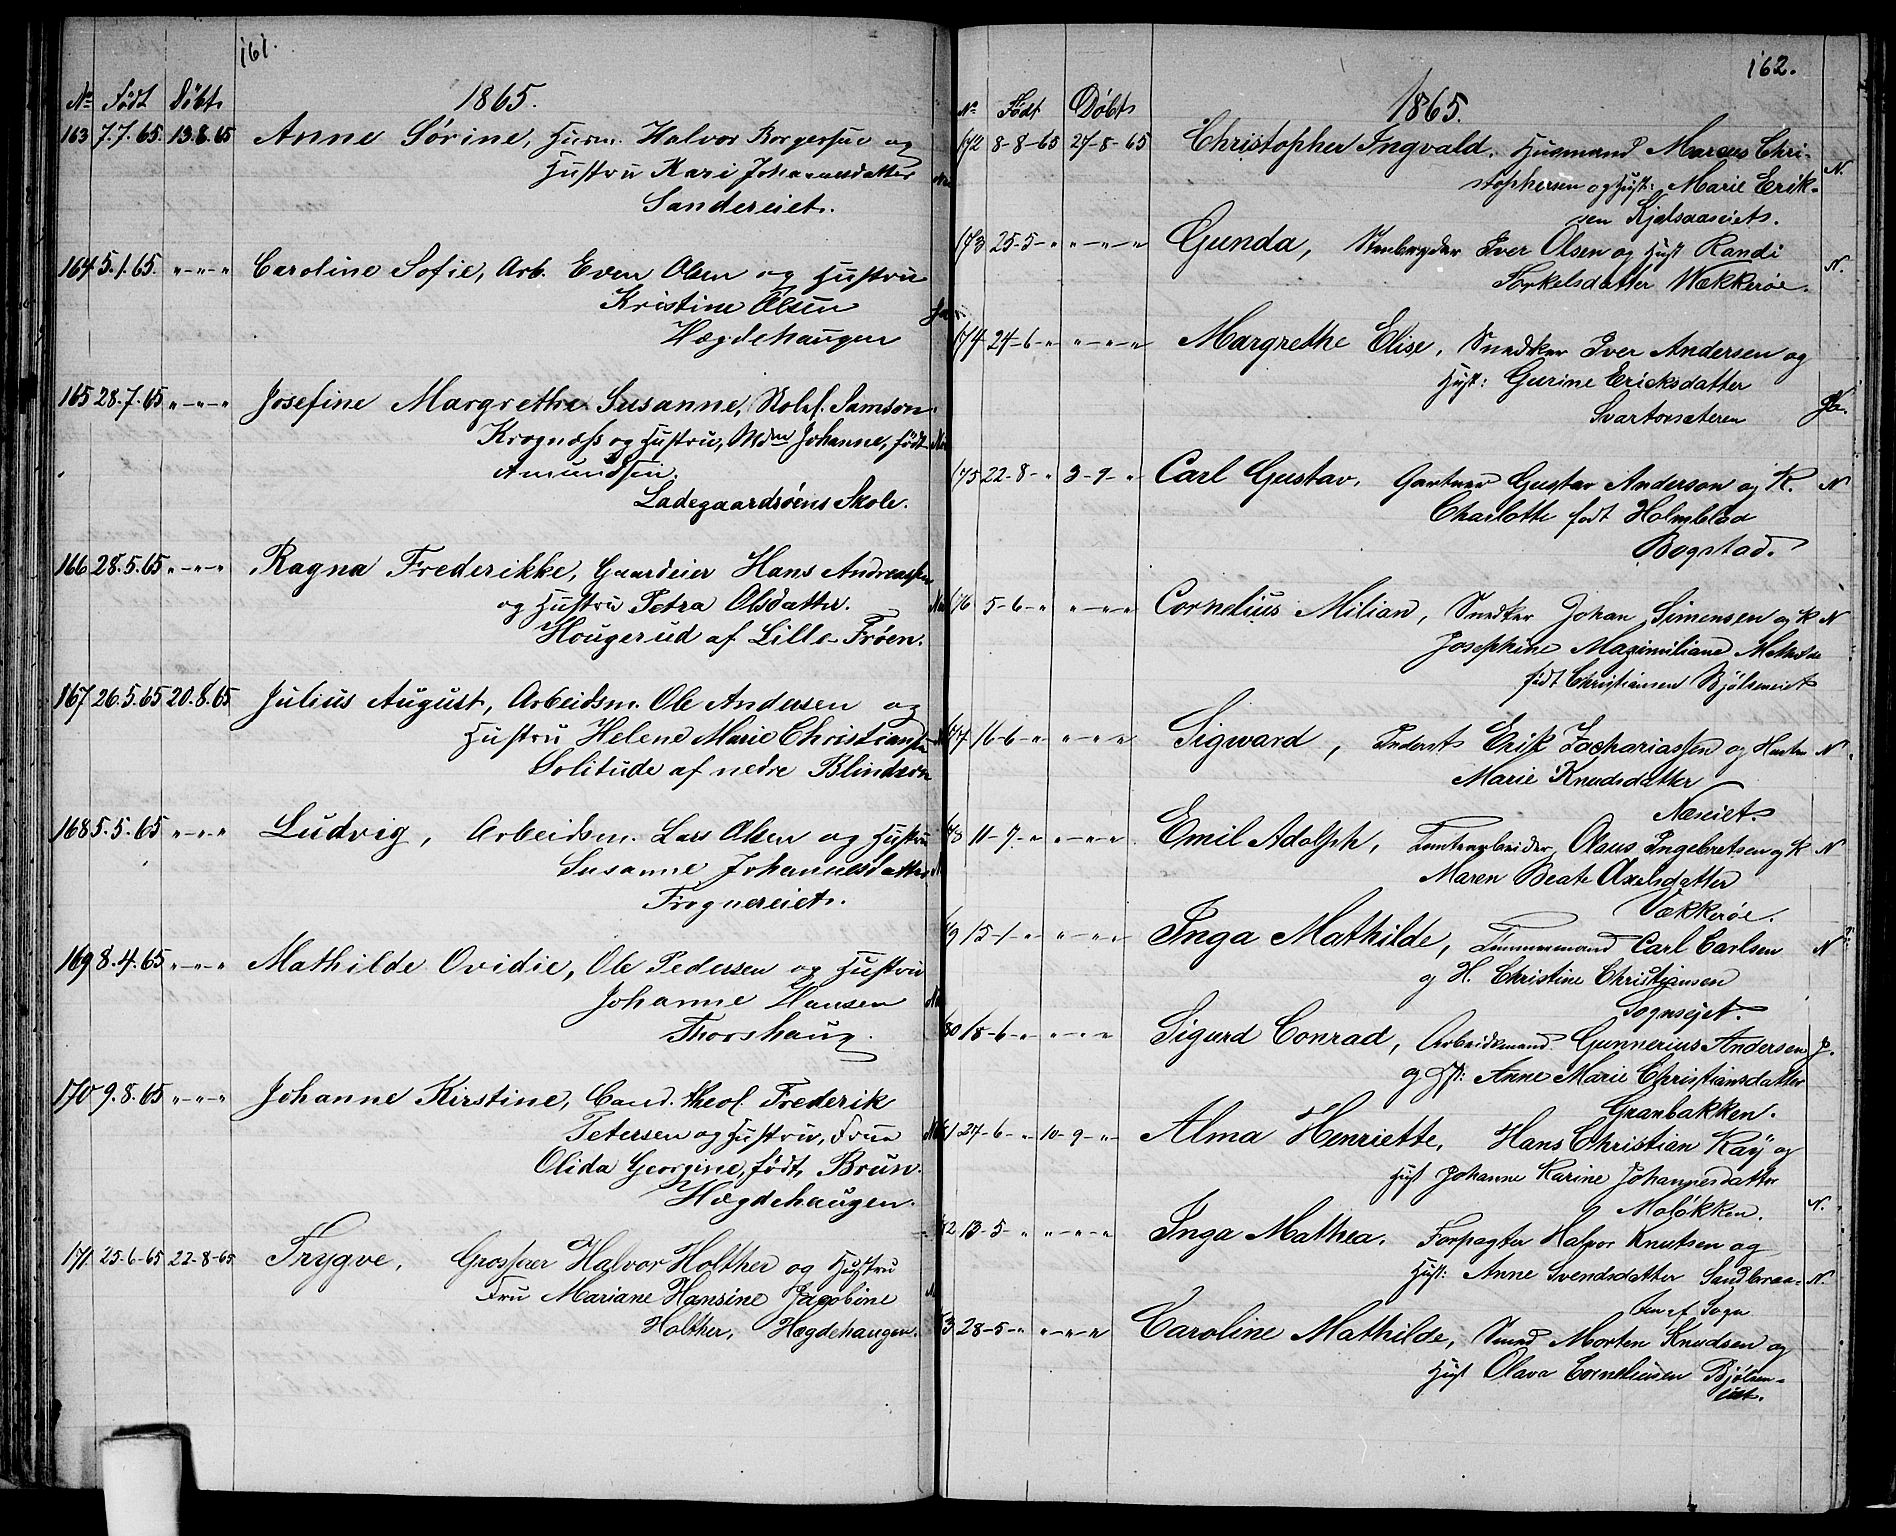 161.
No Født Döbt 1865.
163 7.7.65. 13.8.65 Anne Sørine, Husm. Halvor Borgersen og
Hustru Kari Johannesdatter
Sandereiet.
164 5.1.65. "-"-" Caroline Sofie, Arb. Even Olsen og Hustru
Kristine Olsen
Hægdehaugen
165 28.7.65 "-"-" Josefine Margrethe Susanne, Skolel. Samson
Krognæss og Hustru, Mdm Johanne, født
Amundsen.
Ladegaardsöens Skole.
166 28.5.65 "-"-" Ragna Frederikke, Gaardeier Hans Andreassen
og Hustru Petra Olsdatter.
Hougerud af Lille-Frøen.
167 26.5.65 20.8.65 Julius August, Arbeidsm. Ole Andersen og
Hustru Helene Marie Christians
Solitude af nedre Blindern
168 5.5.65 "-"-" Ludvig, Arbeidsm. Lars Olsen og Hustru
Susanne Johannesdatter
Frognereiet.
169 8.4.65 "-"-" Mathilde Ovidie, Ole Pedersen og Hustru
Johanne Hansen
Thorshaug.
170 9.8.65 "-"-" Johanne Kirstine, Cand. theol. Frederik
Petersen og Hustru, Frue
Olida Georgine, født Brun.
Hægdehaugen.
171. 25-6-65 22-8-65. Trygve, Grosserer Halvor Holther og Hustru
Fru Mariane Hansine Jacobine
Holther, Hægdehaugen.
162.
No Født Döbt 1865.
172 8-8-65 27-8-65 Christopher Ingvald. Husmand Marcus Chri-
stophersen og Hust: Marie Erik- N.
sen Kjelsaaseiet.
173 25-5-" "-"-" Gunda, Stenbryder Iver Olsen og Hust Randi
Torkelsdatter Wækkerøe. N.
174 24-6-" "-"-" Margrethe Elise, Snedker Iver Andersen og
Hust: Gurine Ericksdatter
Svartorsæteren
175 22-8-" 3-9-" Carl Gustav, Gartner Gustav Anderson og K. N
Charlotte født Holmblad
Bogstad.
176 5-6-" "-"-" Cornelius Milian, Snedker Johan Simensen og K N
Josephine Maximiliane Mathilde
født Christiansen Bjölseneiet
177 16-6-" "-"-" Sigward, Inderst Erik Zachariassen og Hustru N.
Marie Knudsdatter
Næseiet.
178 11-7-" "-"-" Emil Adolph, Tomtearbeider, Olaus Ingebretsen og K N
Maren Beate Axelsdatter
Vækkerøe.
179 15-1-" "-"-" Inga Mathilde, Tømmermand Carl Carlsen N
og H. Christine Christiansen
Sognsejet.
180 18-6-" "-"-" Sigurd Conrad, Arbeidsmand. Gunnerius Andersen J.
og Hst: Anne Marie Christiansdatter
Granbakken.
181 24-6-" 10-9-" Alma Henriette, Hans Christian Kaÿ og
Hust Johanne Karine Johannesdatter
Moløkken. N.
182 13-5-" "-"-" Inga Mathea. Forpagter Halvor Knutsen og
Hust: Anne Svendsdatter Sandbraa- N.
ten af Sogn
183 28-5-" "-"-" Caroline Mathilde, Smed Morten Knudsen og
Hust Olava Corneliussen Bjölsen-
eiet.